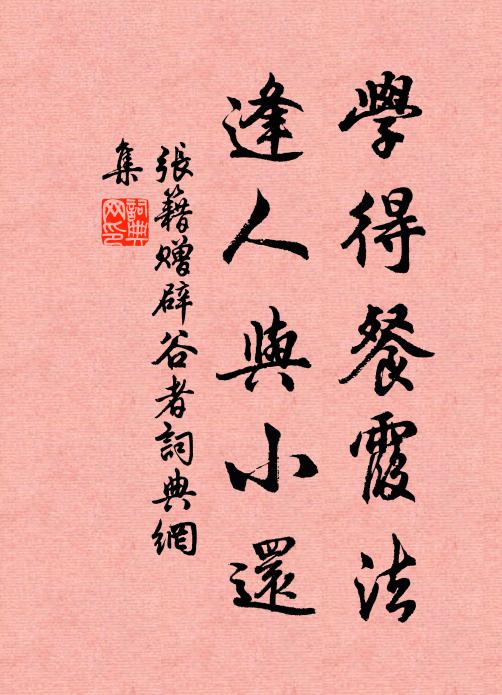 學得餐霞法
逢人與小還
張籍贈辟谷者詞典網
集
詞典網印